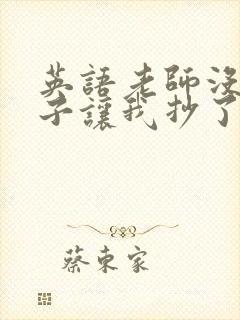 英語老師沒
子讓我抄了
蔡東家